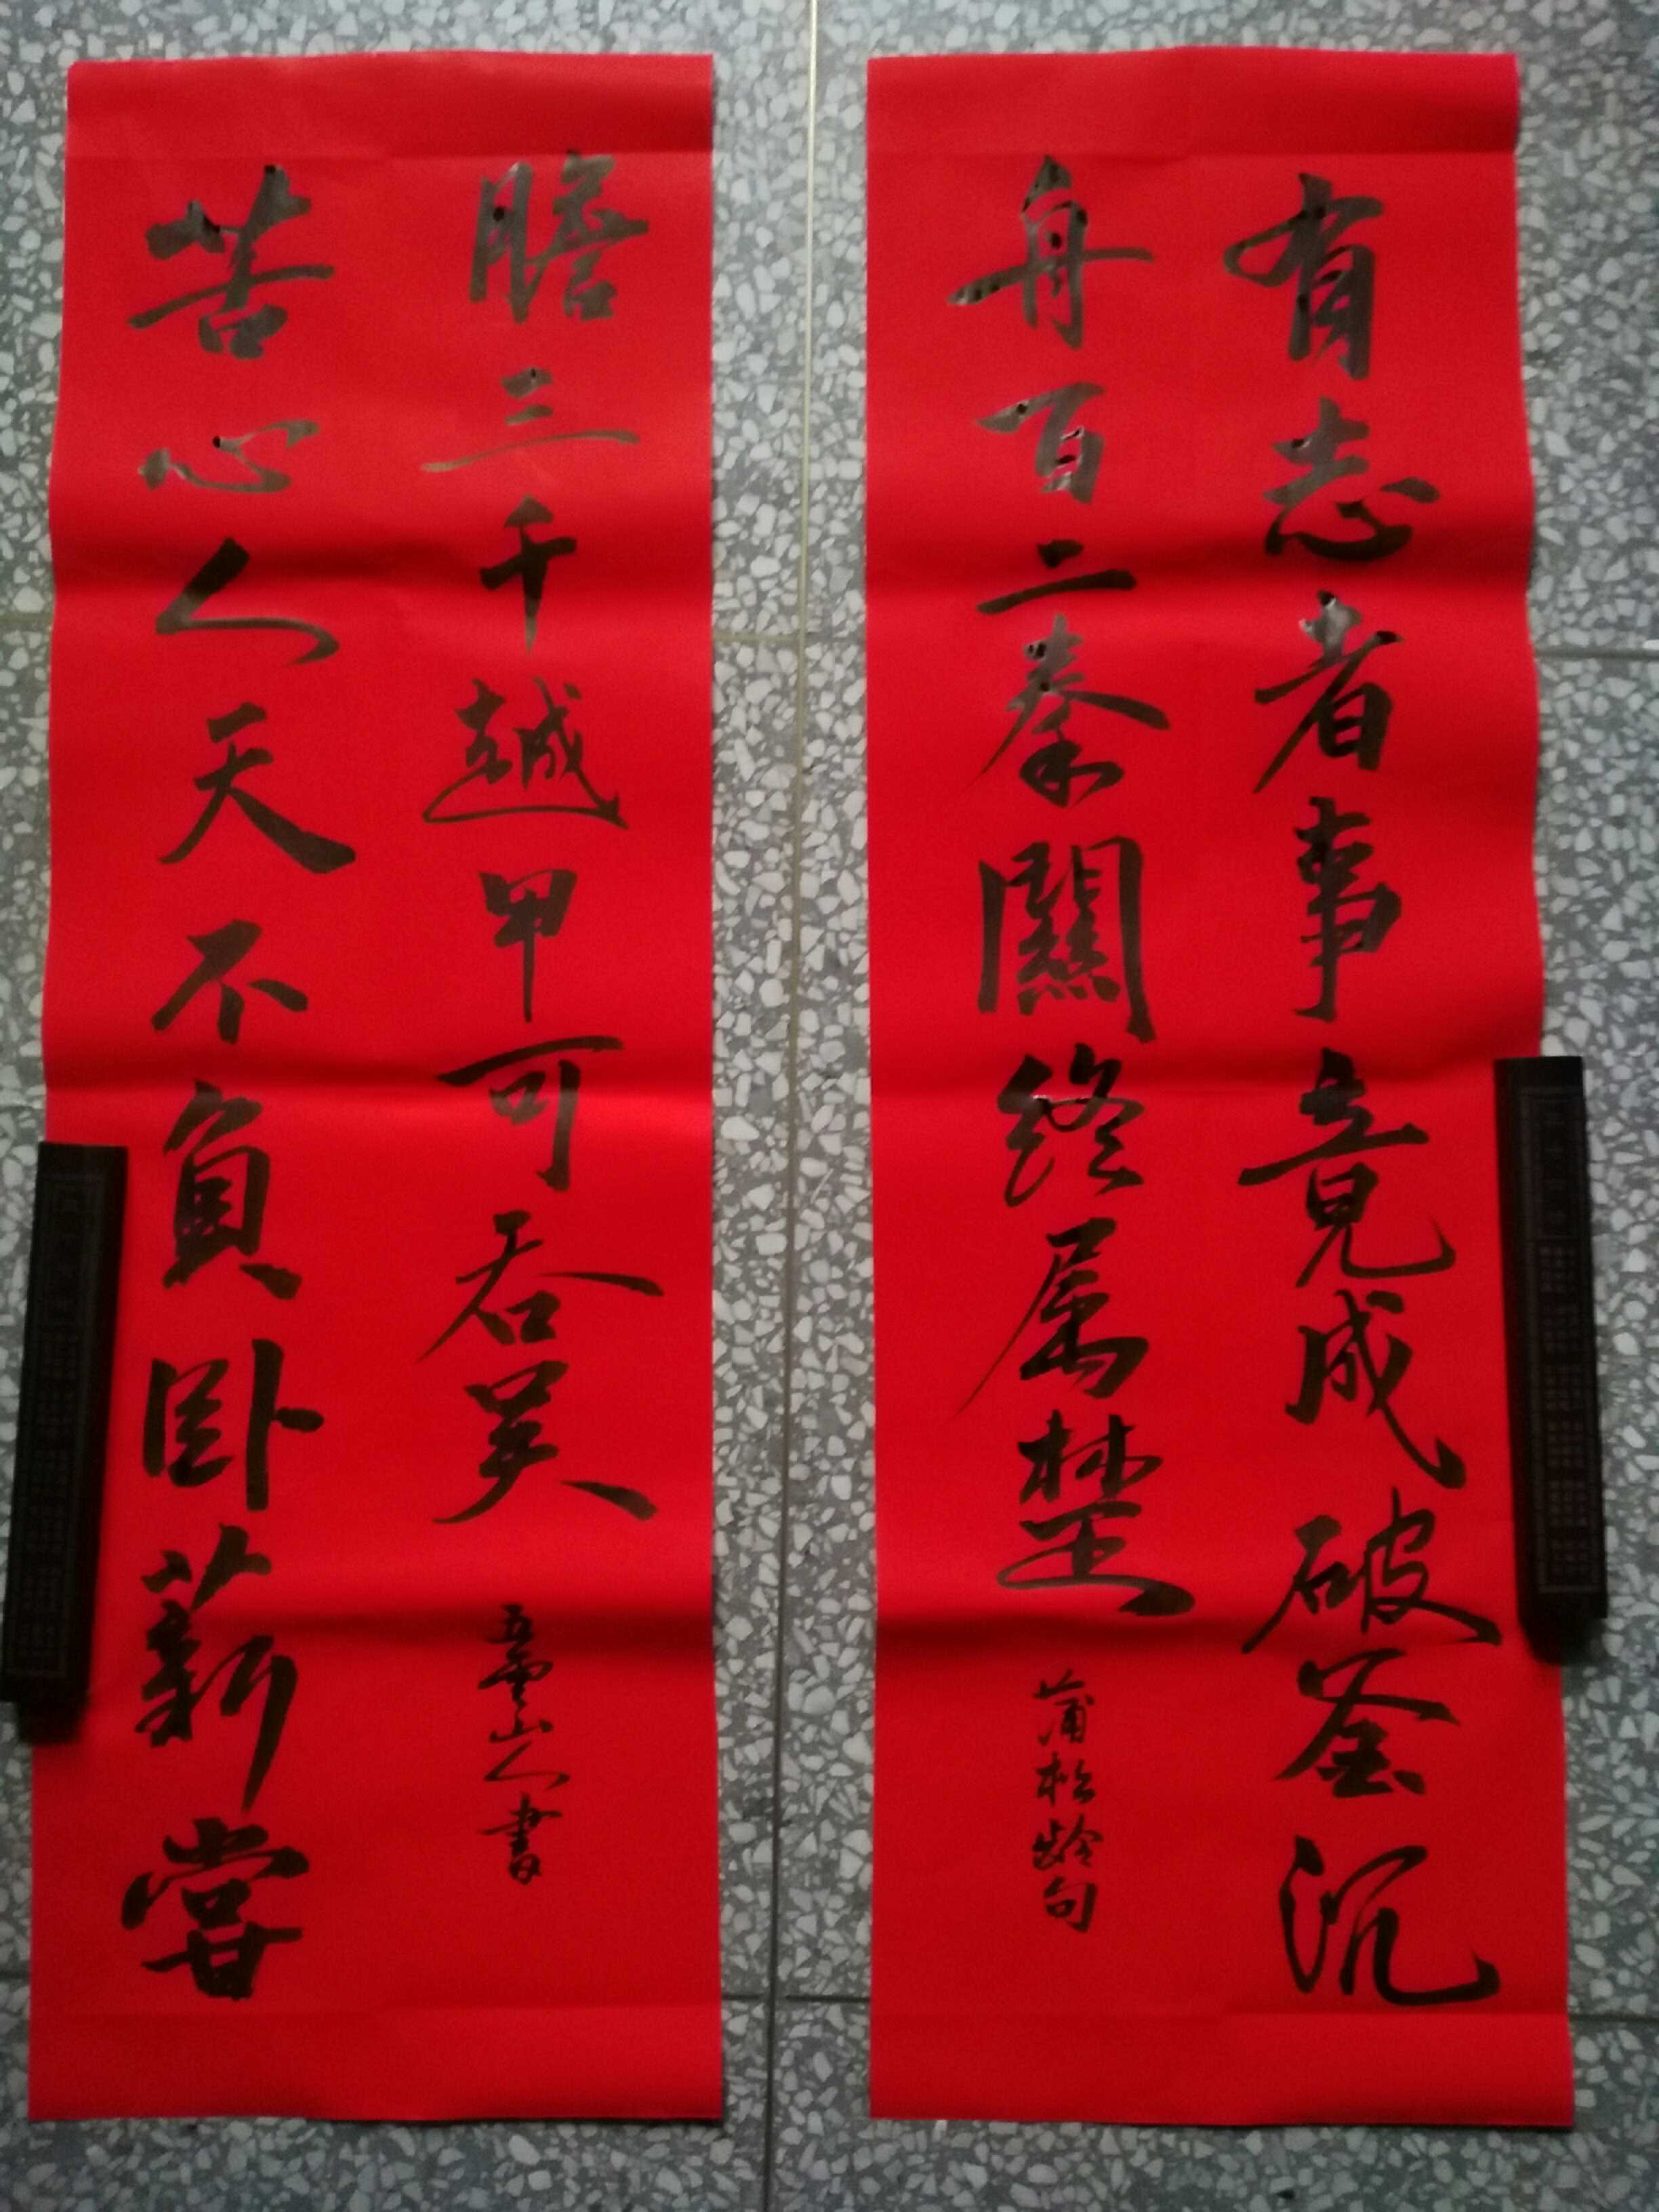 有志者事竟成破釜沉
舟百二秦關終属楚
蒲松齡句
苦心人天不負卧薪嘗
膽三千越甲可吞吴
五雲山人書